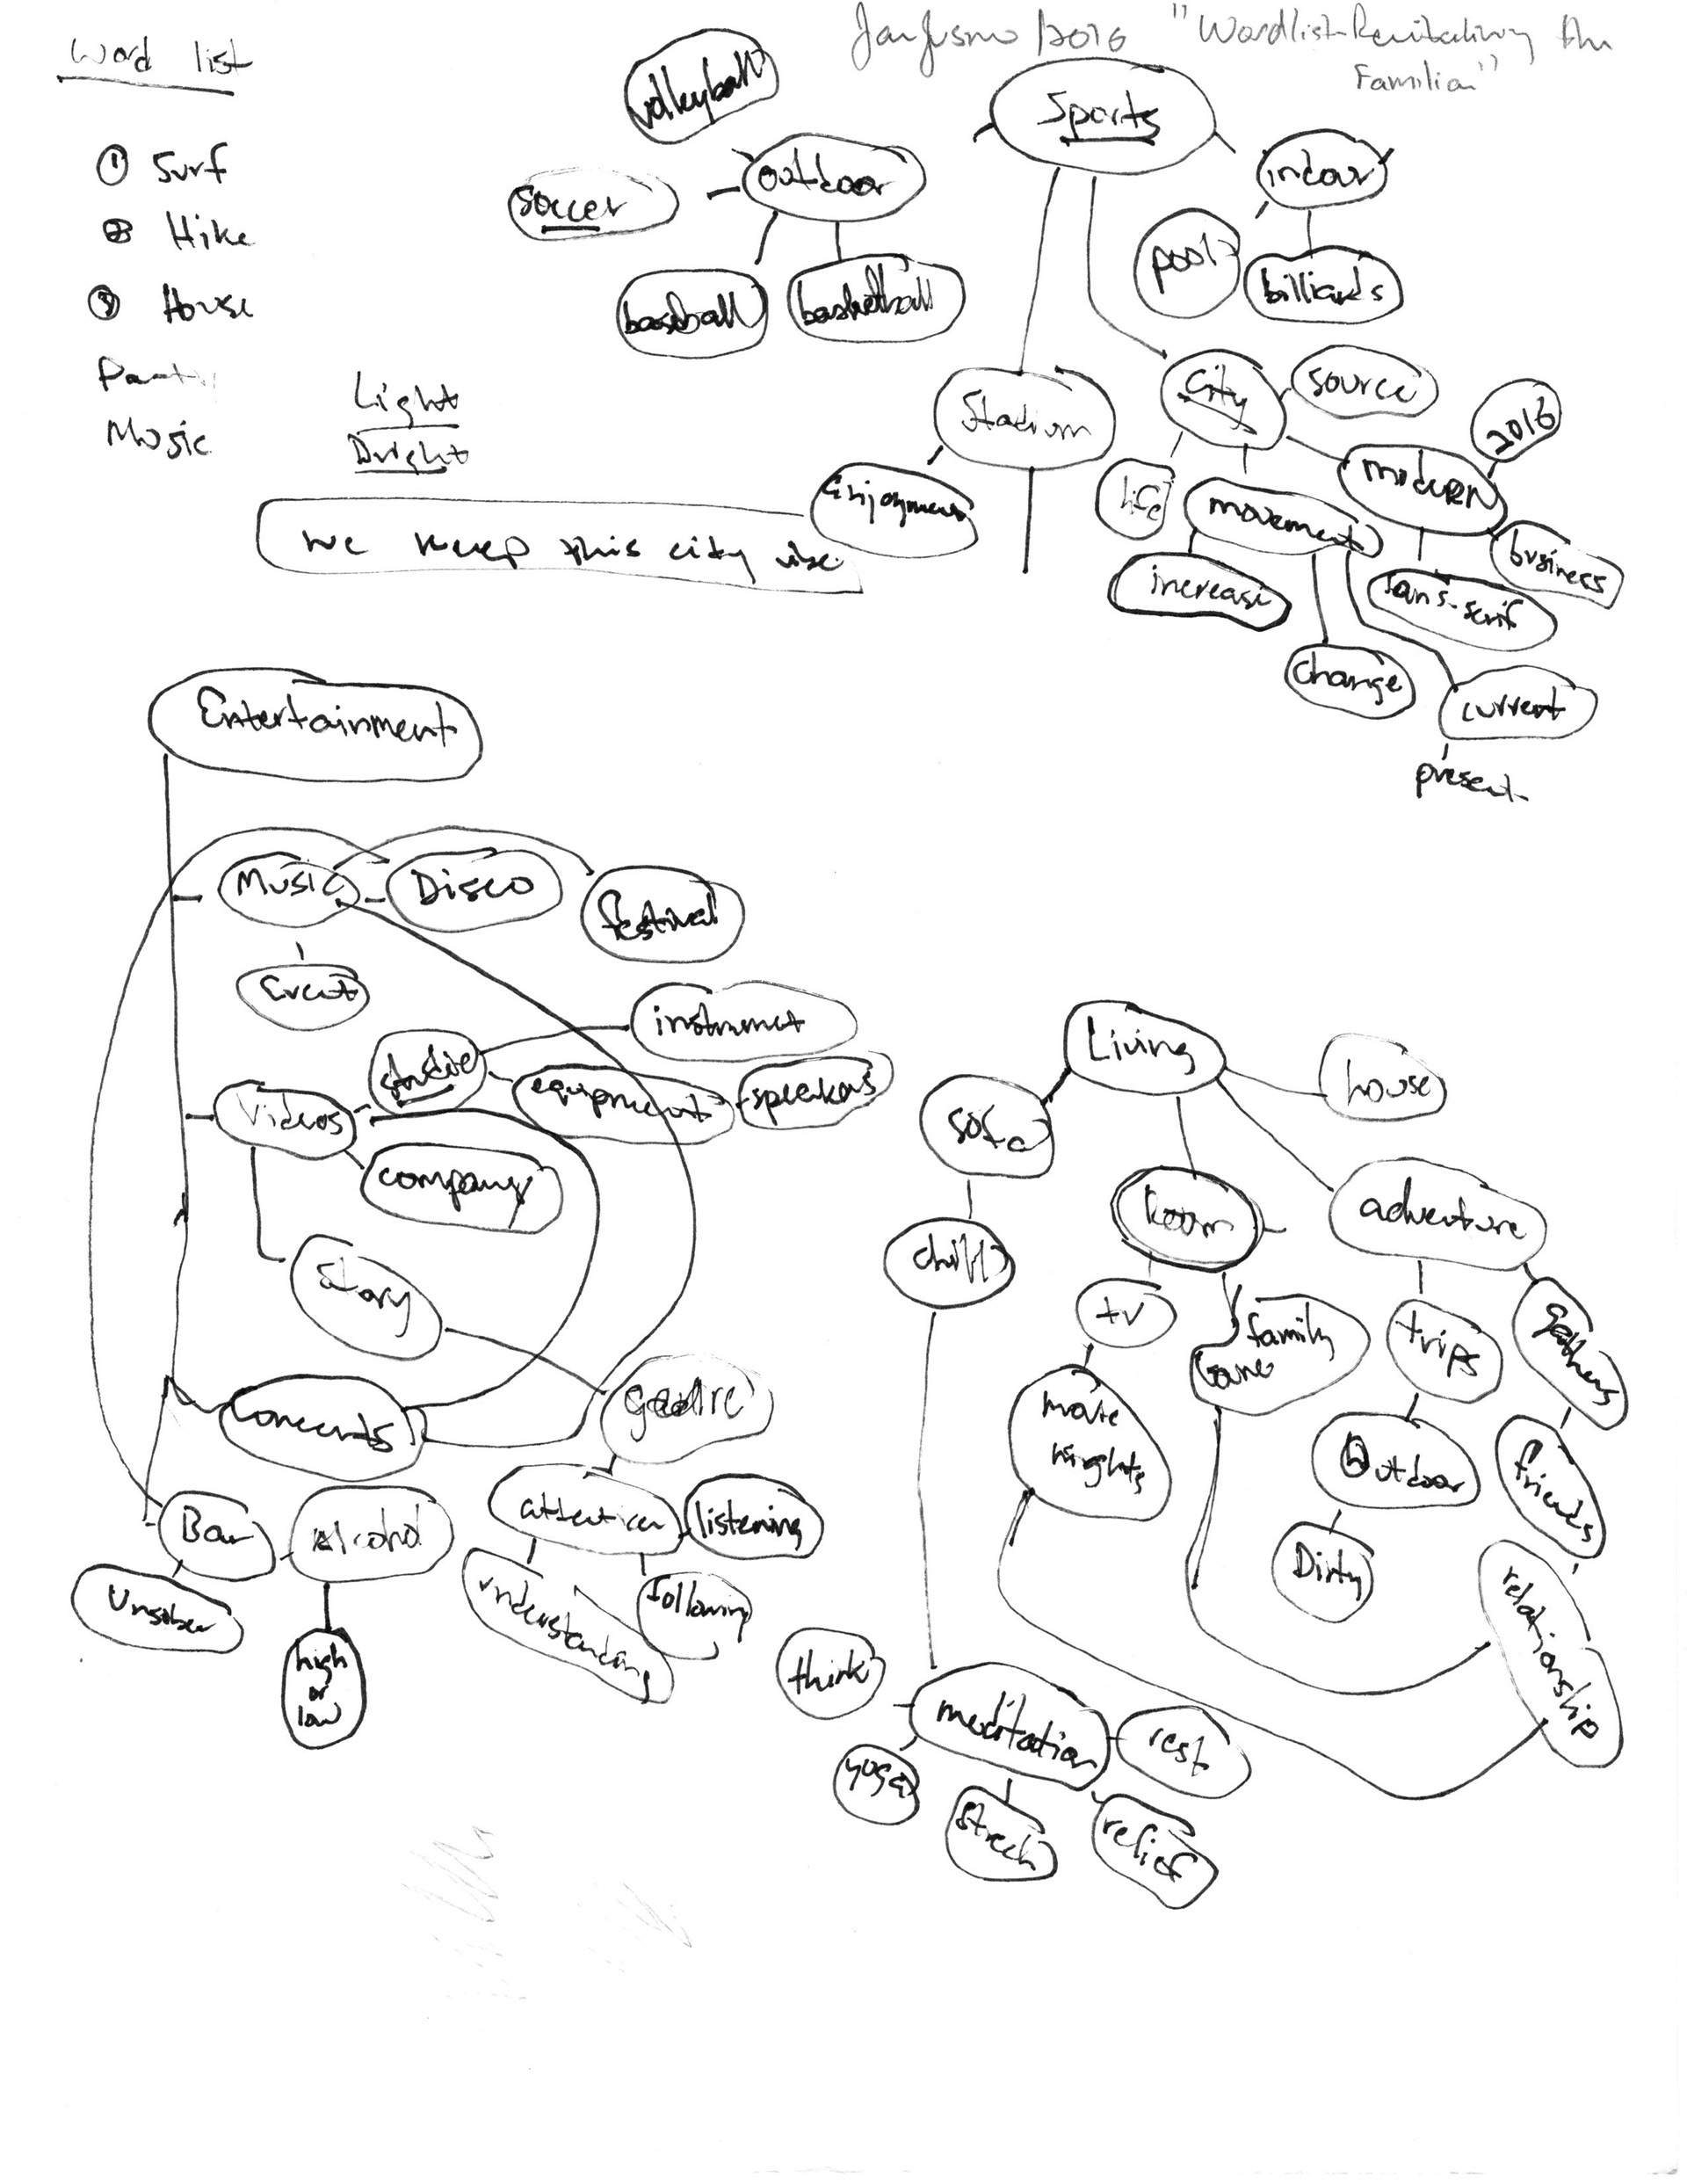 Word list
2016 "Wordlist-Revitalizing the
Familiar"
① Surf
② Hike
③ House
Party
Music
Light
Bright
we keep this city
Sports
volleyball
outdoor
soccer
baseball
basketball
indoor
pool
billiards
Stadium
Enjoyment
City
source
life
movement
modern
2016
business
sans-serif
increase
change
current
present
Entertainment
Music
Disco
festival
Event
studio
instrumet
Videos
equipment
speakers
company
Story
concerts
Bar
Alcohol
Unsober
high
or
low
attention
listening
understanding
following
Living
house
sofa
Room
adventure
chill
tv
family
trips
gathers
movie
nights
Outdoor
friends
Dirty
relationship
think
meditation
rest
yoga
strech
relief